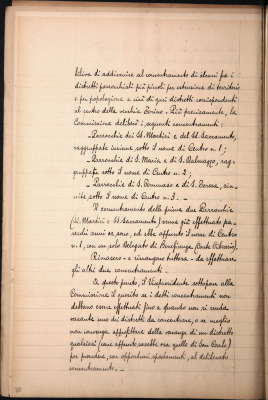 l'idea di addivenire al concentramento di alcuni fra i
distretti parrocchiali più piccoli per estensione di territorio
e per popolazione e cioè di quei distretti corrispondenti
al centro della vecchia Torino. Più precisamente, la
Commissione deliberò i seguenti concentramenti:
– Parrocchie dei SS. Martiri e del SS. Sacramento,
raggruppate insieme sotto il nome di Centro n. 1;
– Parrocchie di S. Maria e di S. Dalmazzo, rag-
gruppate sotto il nome di Centro n. 2;
– Parrocchie di S. Tommaso e di S. Teresa, riu-
nite sotto il nome di Centro n. 3. –
Il concentramento delle prime due Parrocchie
(SS. Martiri e SS. Sacramento) venne già effettuato pa-
recchi anni or sono, ed ebbe appunto il nome di Centro
n. 1, con un solo Delegato di Beneficenza
Rimasero – e rimangono tuttora – da effettuare
gli altri due concentramenti.
A questo punto, il Vicepresidente sottopone alla
Commissione il quesito se i detti concentramenti non
debbano essere effettuati fino a quando non si renda
vacante uno di distretti da concentrare, o se meglio
non convenga approfittare della vacanza di un distretto
qualsiasi (come appunto sarebbe ora quello di San Carlo)
per procedere, con opportuni spostamenti, al deliberato
concentramento. –